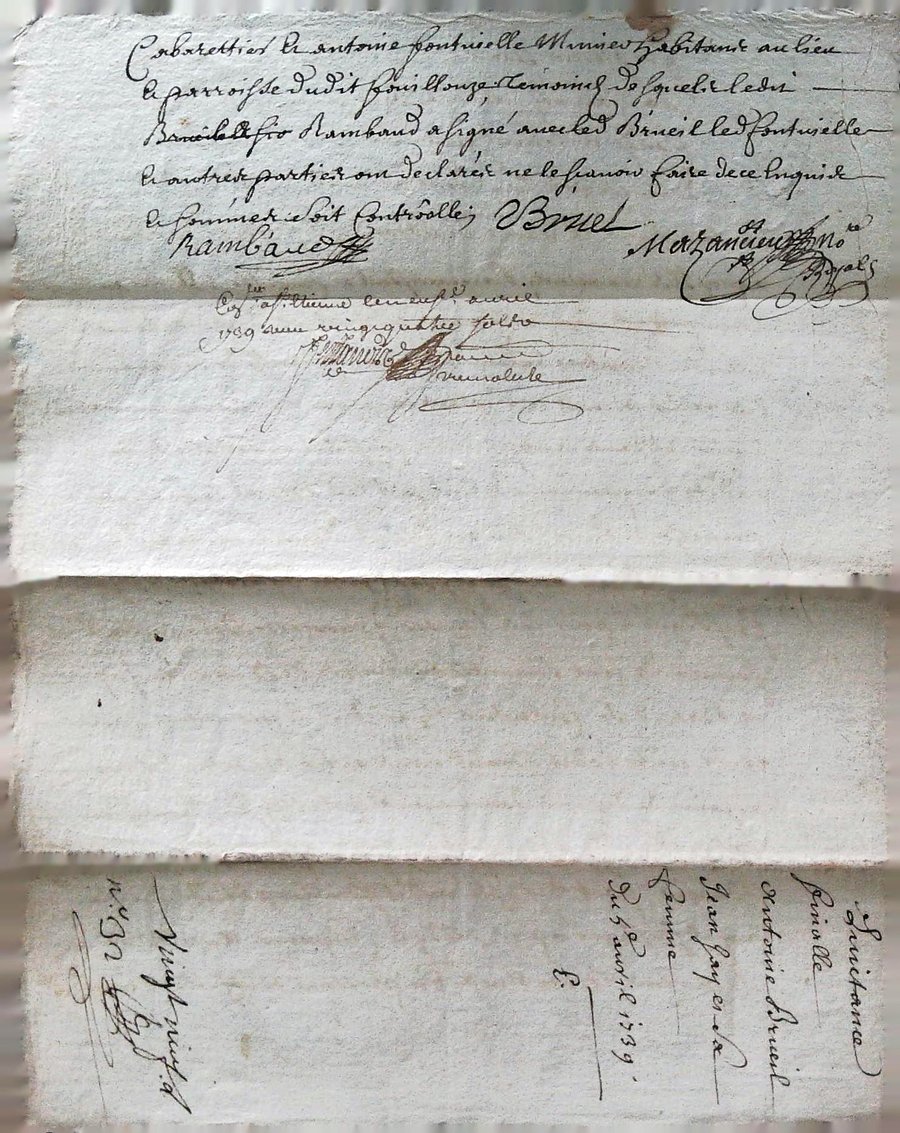 Cabarettier et antoine fontvielle Munier habitans au lieu
et parroisse dudit fouillouze temoincs desquels ledit
Brueil et sieo Rambaud a signé avec led Brueil led fontvielle
et autres parties ont declarés ne le scavoir faire de ce Enquis
et sommés soit Controllé
Bruel
Rambaud
Mazancieux no.re
Royal
le neuf.e avril
1739 vingt quatre solds
Quitance
finalle
Antoine Brueil
Jean Gay et sa
femme
du 5.e avril 1739
E.
Vingt neuf. d
n.o 32